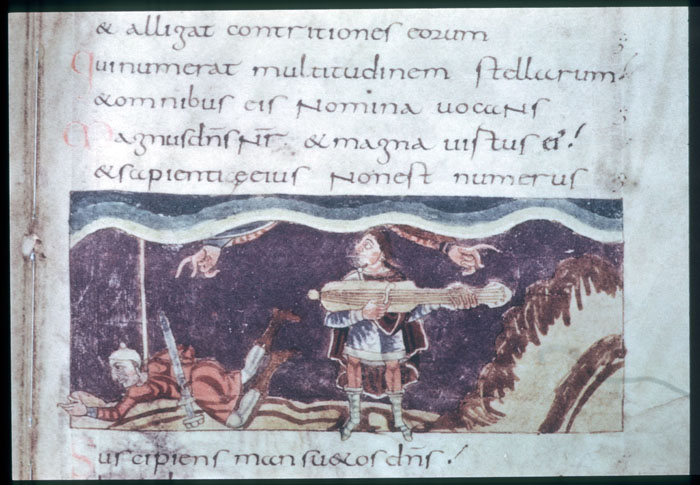 & alligat contritiones eorum
Qui numerat multitudinem stellarum
& omnibus eis Nomina uocaNs
Magnus dn̄s Nr̄ & magna uirtus ei'
& sapientiȩ eius NonesT numerus
Suscipiens mansu&os dn̄s